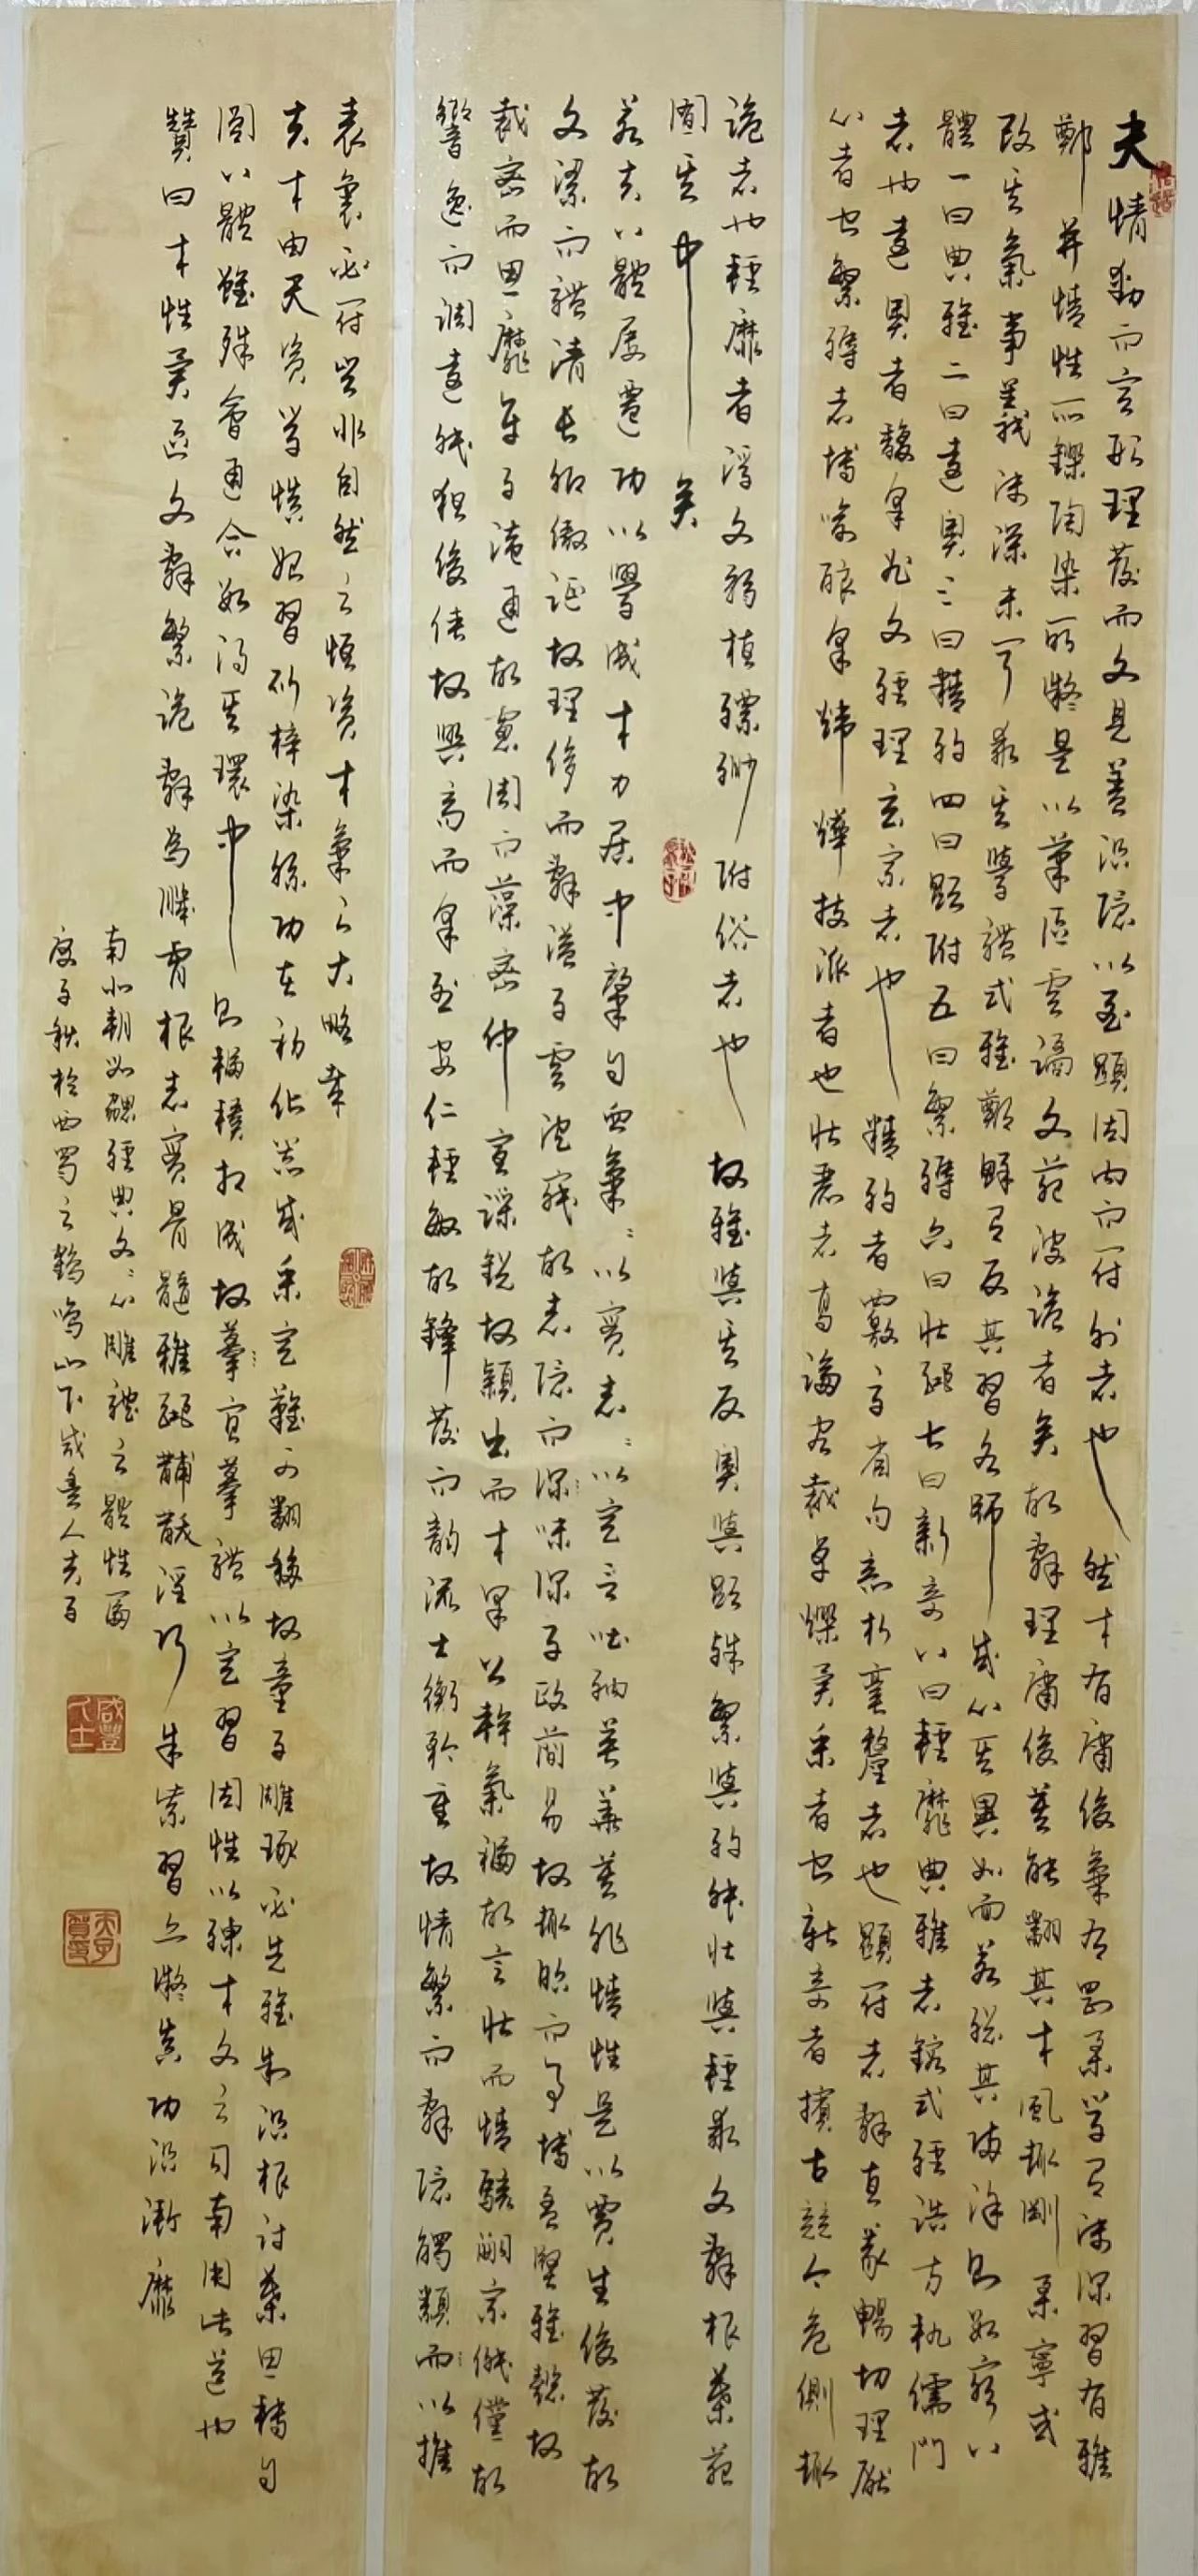 夫情動而言形理發而文見蓋沿隱以至顯因內而符外者也然才有庸俊氣有剛柔學有淺深習有雅
鄭并情性所鑠陶染所凝是以筆區雲譎文苑波詭者矣故辭理庸俊莫能翻其才風趣剛柔寧或
改其氣事義淺深未聞乖其學體式雅鄭鮮有反其習各師成心其異如面若總其歸塗則數窮八
體一曰典雅二曰遠奧三曰精約四曰顯附五曰繁縟六曰壯麗七曰新奇八曰輕靡典雅者鎔式經誥方軌儒門
者也遠奧者馥采典文經理玄宗者也精約者覈字省句剖析毫釐者也顯附者辭直義暢切理厭
心者也繁縟者博喻釀采煒燁技派者也壯麗者高論宏裁卓爍異采者也新奇者擯古競今危側趣
詭者也輕靡者浮文弱植縹緲附俗者也故雅與其反奧與顯殊繁與約舛壯與輕乖文辭根葉苑
囿其中矣
若夫八體屢遷功以學成才力居中肇自血氣氣以實志志以定言吐納英華莫非情性是以賈生俊發故
文潔而體清長卿傲誕故理侈而辭溢子雲沈寂故志隱而深味深子政簡易故趣昭而事博孟堅雅懿故
裁密而思靡平子淹通故慮周而藻密仲宣躁銳故穎出而才果公幹氣褊故言壯而情駭嗣宗俶儻故
響逸而調遠叔夜俊俠故興高而采烈安仁輕敏故鋒發而韻流士衡矜重故情繁而辭隱觸類而以推
表裏必符豈非自然之恆資才氣之大略哉
夫才由天資學慎始習斫梓染絲功在初化器成采定難可翻移故童子雕琢必先雅制沿根討葉思轉自
圓八體雖殊會通合數得其環中則輻輳相成故摹宜摹體以定習因性以練才文之司南用此道也
贊曰才性異區文辭繁詭辭為膚根志實骨髓雅麗黼黻淫巧朱紫習亦凝真功沿漸靡
南北朝劉勰經典文文心雕龍之體性篇
庚子秋於西蜀之鶴鳴山下咸豐人
咸豐人士